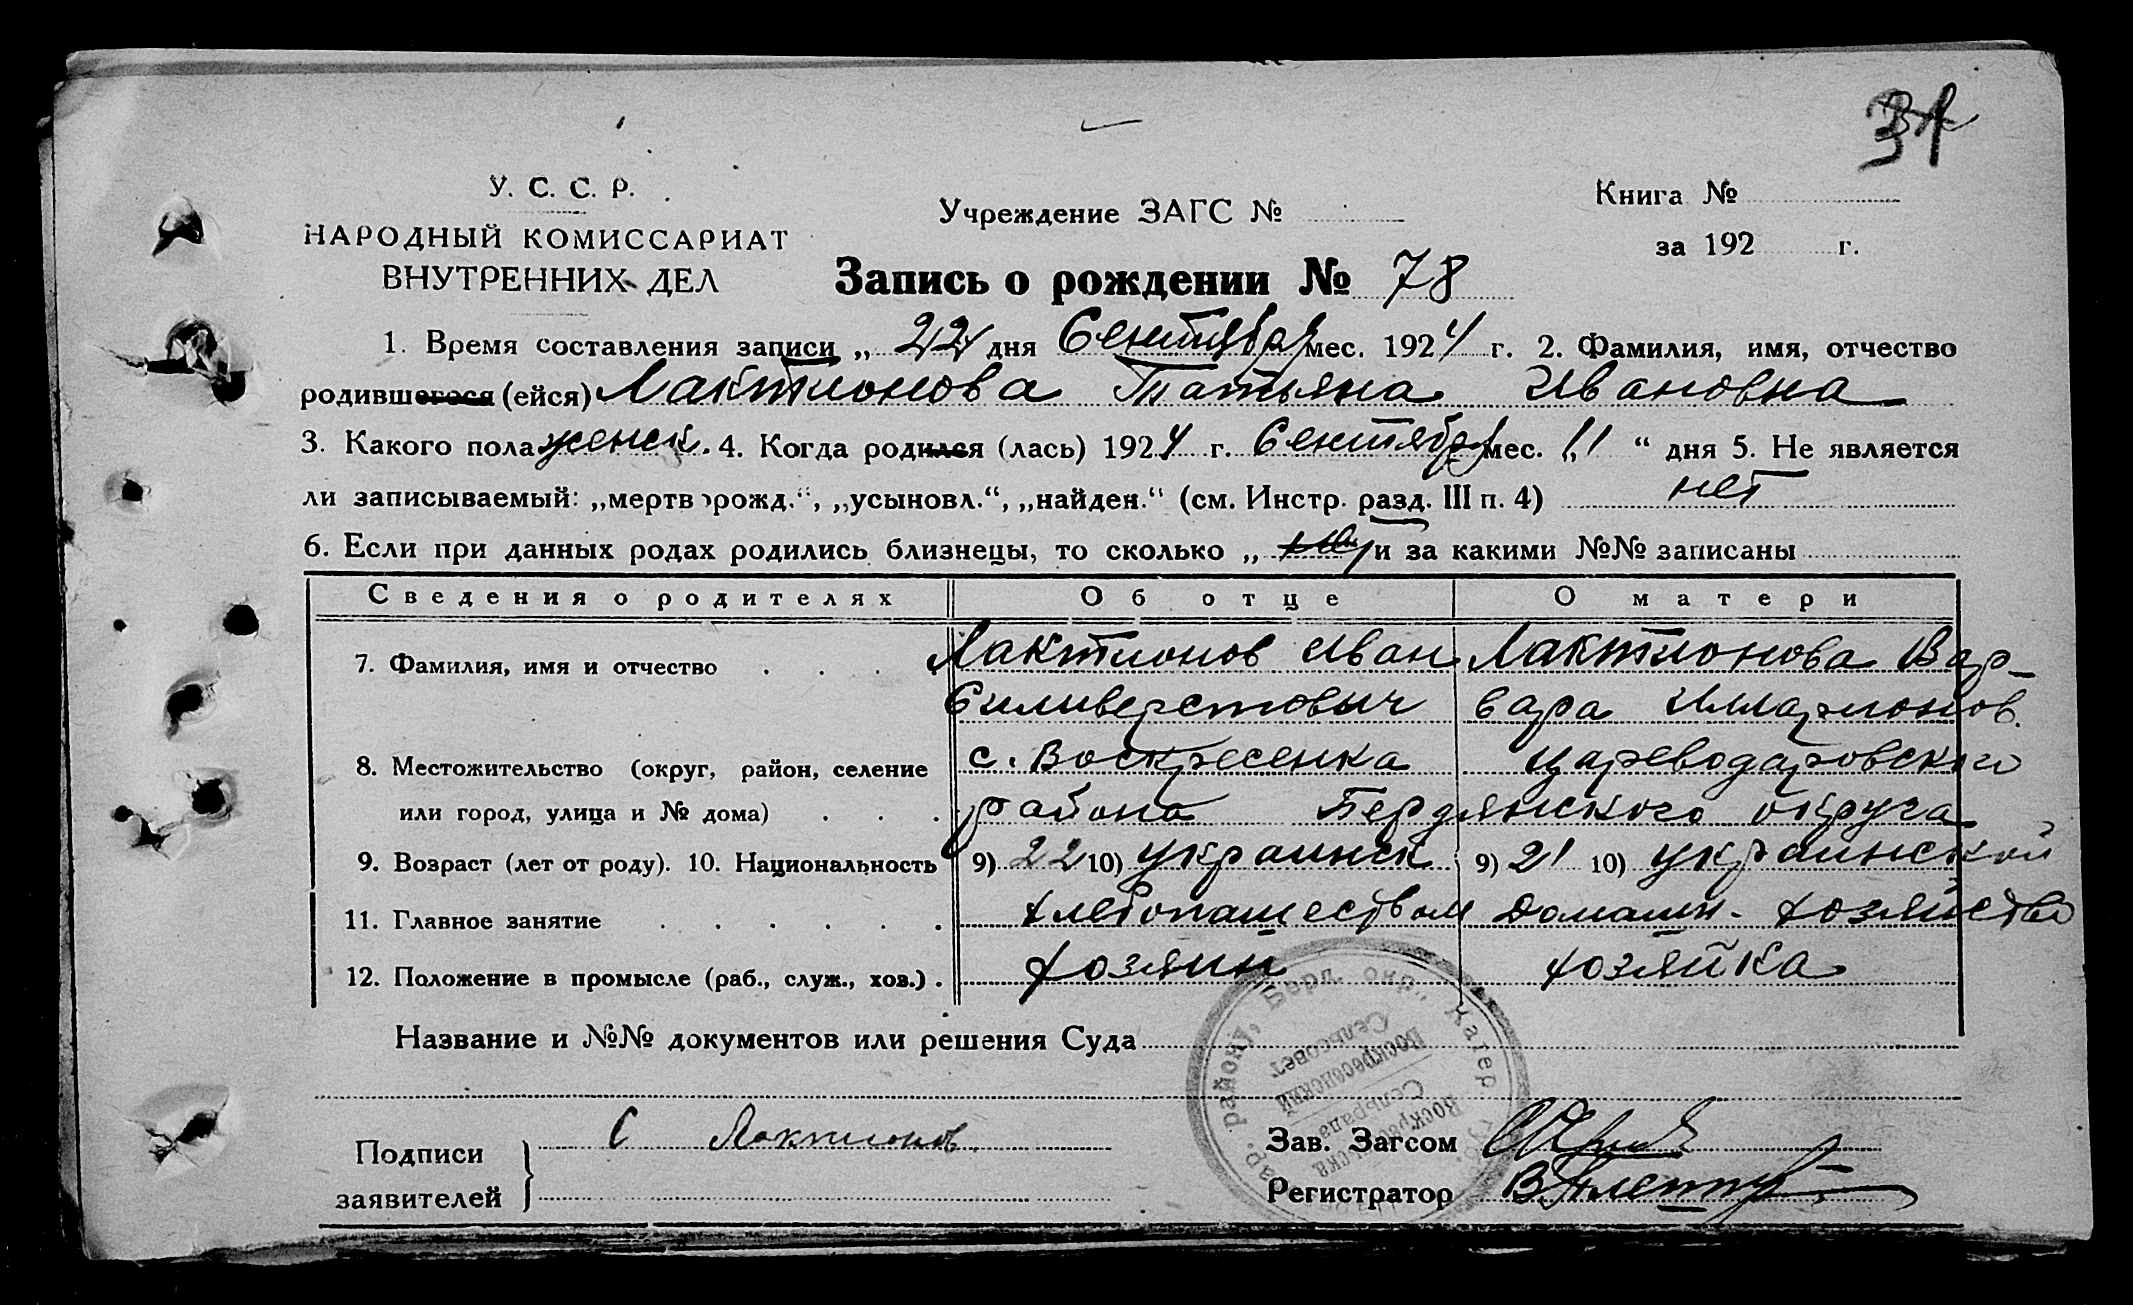 У. С. С. Р.
НАРОДНЫЙ КОМИССАРИАТ
ВНУТРЕННИХ ДЕЛ
Учреждение ЗАГС №
Книга №
за 192 г.
Запись о рождении № 78
1. Время составления записи „ 22 дня Сентября мес. 1924 г. 2. Фамилия, имя, отчество
родившегося (ейся) Лактионова Татьяна Ивановна
3. Какого пола женск. 4. Когда родился (лась) 1924 г. Сентября мес. „11 “ дня 5. Не является
ли записываемый: „мертворожд.“, „усыновл.“, „найден.“ (см. Инстр. разд. III п. 4) нет
6. Если при данных родах родились близнецы, то сколько „ и за какими №№ записаны
Сведения о родителях Об отце О матери
7. Фамилия, имя и отчество . . . Лактионов Иван Лактионова Вар-
Силиверстович вара Илларионов.
8. Местожительство (округ, район, селение с. Воскресенка Цареводаровского
или город, улица и № дома) . . . района Бердянского округа
9. Возраст (лет от роду). 10. Национальность 9) 22 10) украинск 9) 21 10) украинской
11. Главное занятие . . . . . . хлебопашеством Домашн. хозяйство
12. Положение в промысле (раб., служ., хоз.) . хозяин хозяйка
Название и №№ документов или решения Суда
Подписи
заявителей
С Лактионов
Зав. Загсом
Регистратор
район, Берд. окр., Катер.
Воскресенский
Сельсовет
Сельрада